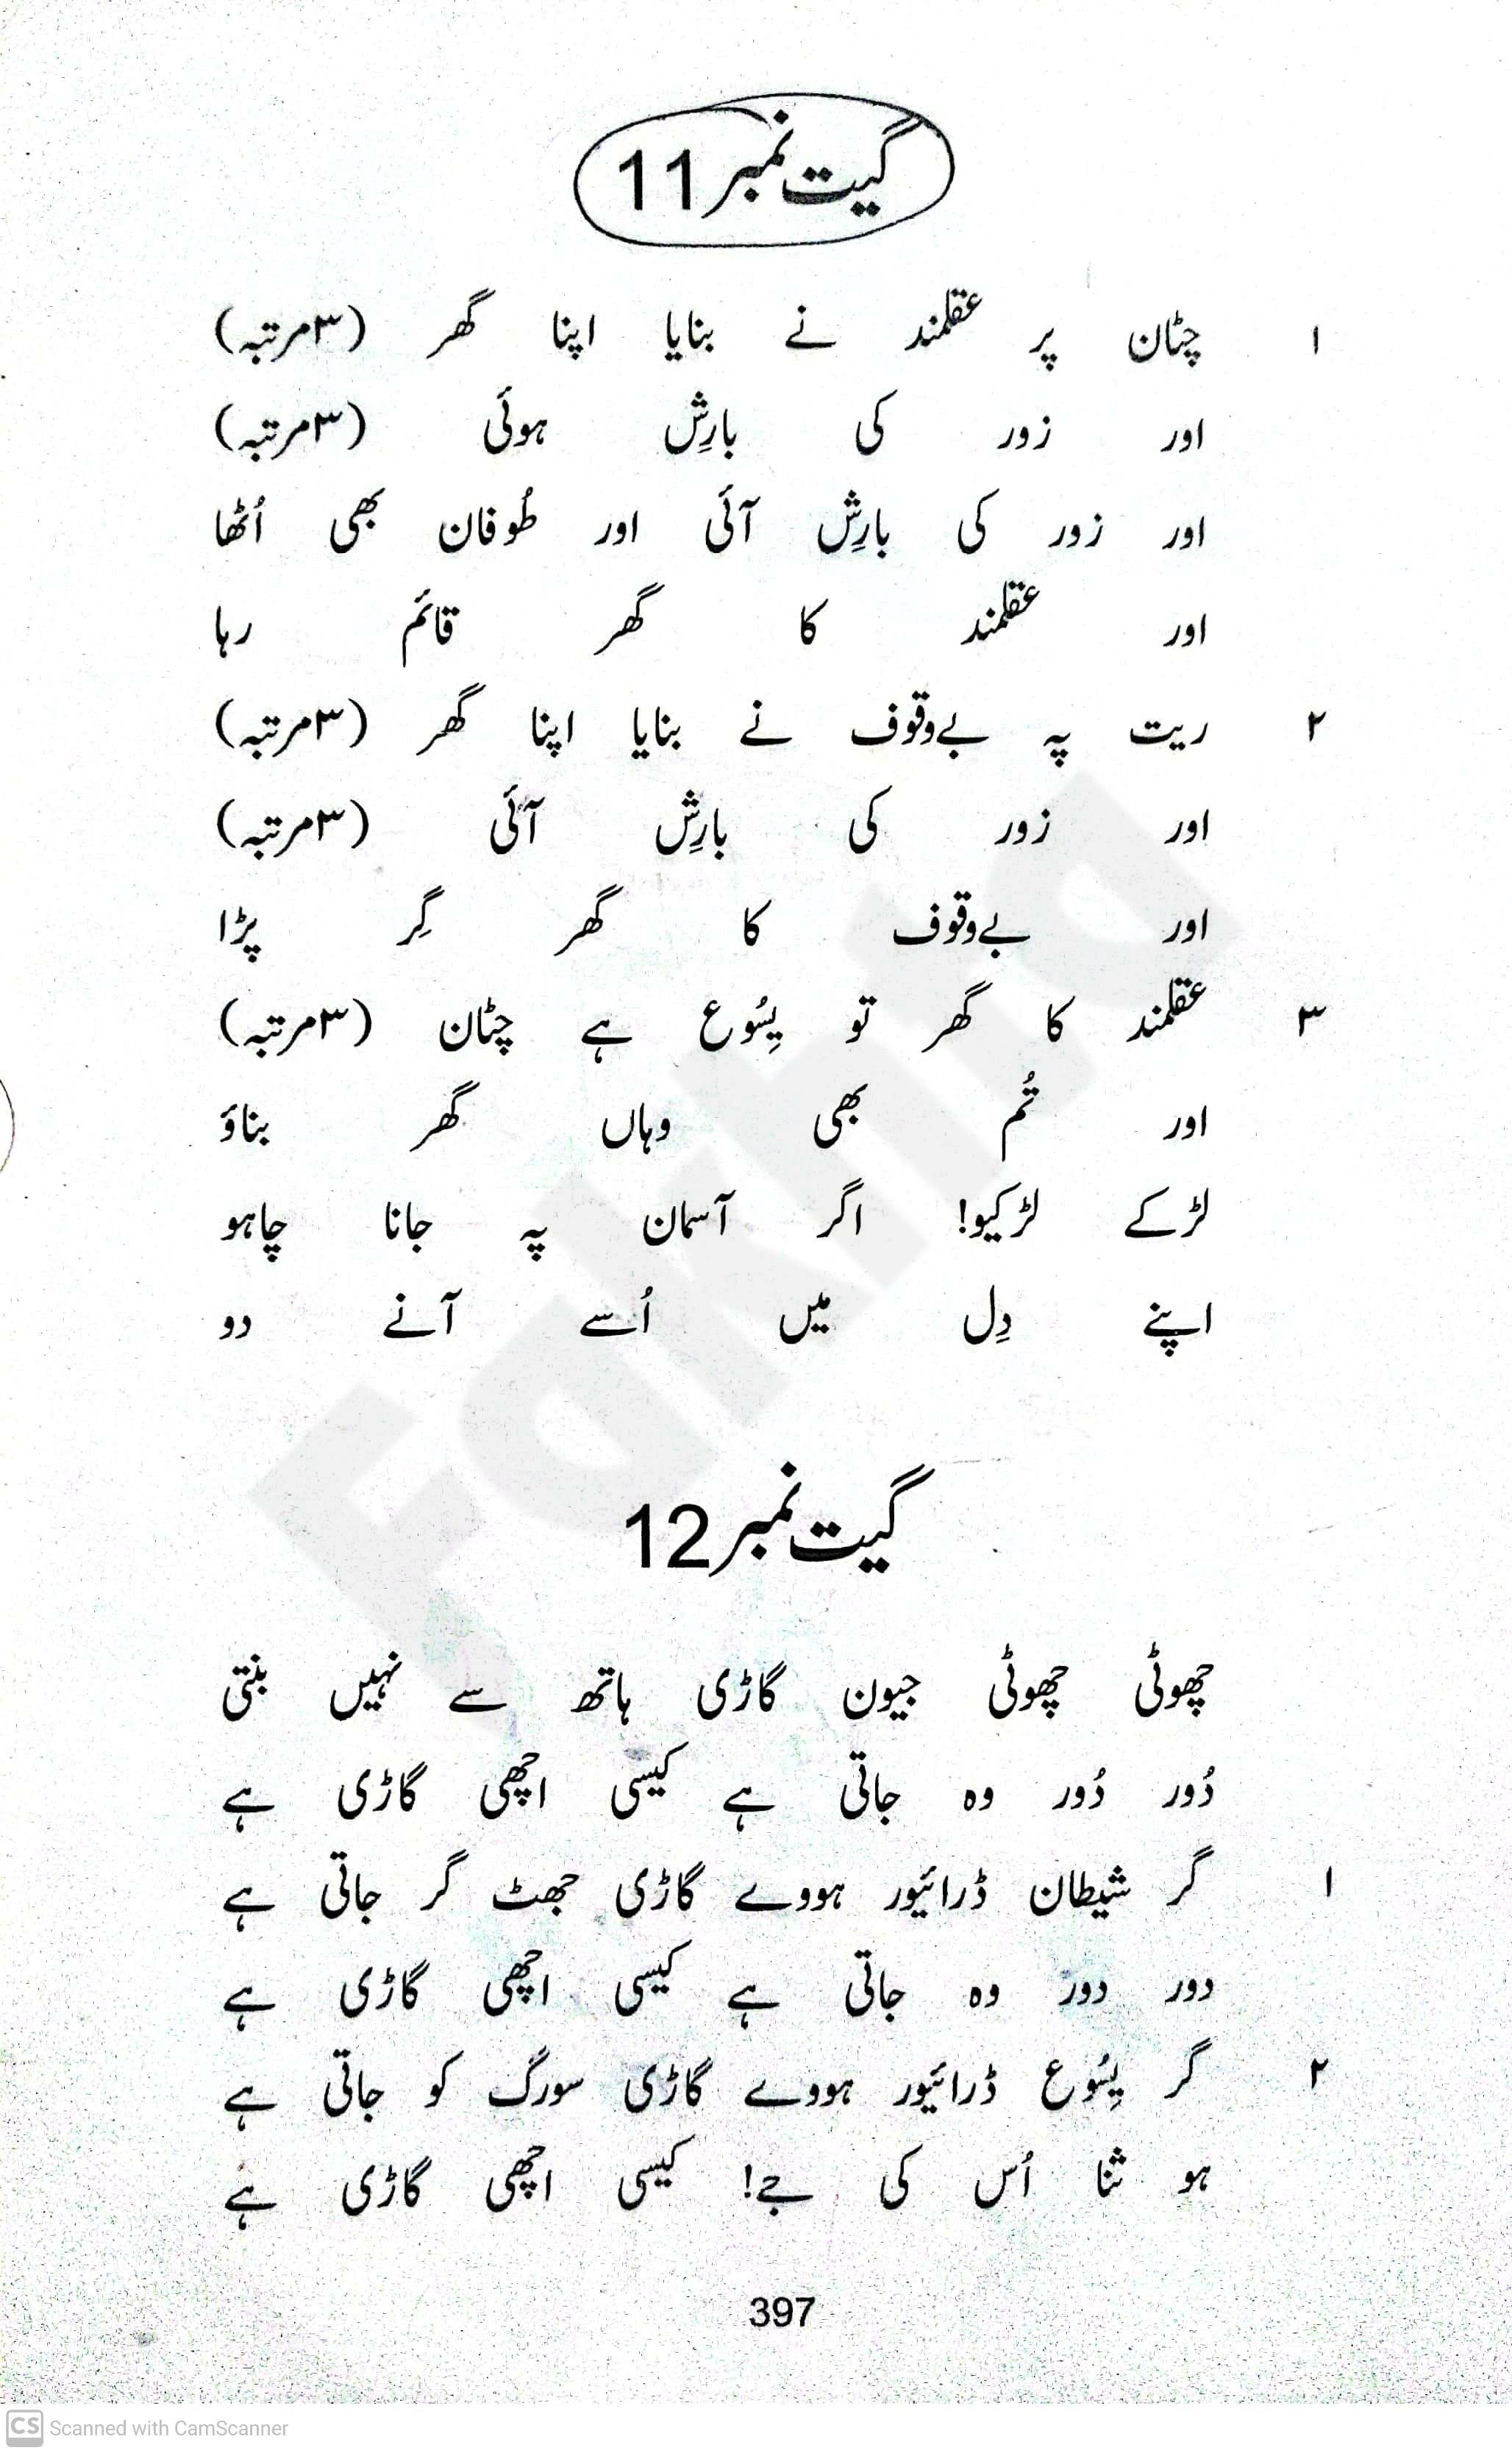 گیت نمبر 11
۱ چٹان پر عقلمند نے بنایا اپنا گھر (۳مرتبہ)
اور زور کی بارِش ہوئی (۳مرتبہ)
اور زور کی بارِش آئی اور طُوفان بھی اُٹھا
اور عقلمند کا گھر قائم رہا
۲ ریت پہ بےوقوف نے بنایا اپنا گھر (۳مرتبہ)
اور زور کی بارِش آئی (۳مرتبہ)
اور بےوقوف کا گھر گِر پڑا
۳ عقلمند کا گھر تو یِسُوع ہے چٹان (۳مرتبہ)
اور تُم بھی وہاں گھر بناؤ
لڑکے لڑکیو! اگر آسمان پہ جانا چاہو
اپنے دِل میں اُسے آنے دو
گیت نمبر 12
چھوٹی چھوٹی جیون گاڑی ہاتھ سے نہیں بنتی
دُور دُور وہ جاتی ہے کیسی اچھی گاڑی ہے
۱ گر شیطان ڈرائیور ہووے گاڑی جھٹ گر جاتی ہے
دور دور وہ جاتی ہے کیسی اچھی گاڑی ہے
۲ گر یِسُوع ڈرائیور ہووے گاڑی سورگ کو جاتی ہے
ہو ثنا اُس کی جے! کیسی اچھی گاڑی ہے
397
Fakhta
CS Scanned with CamScanner